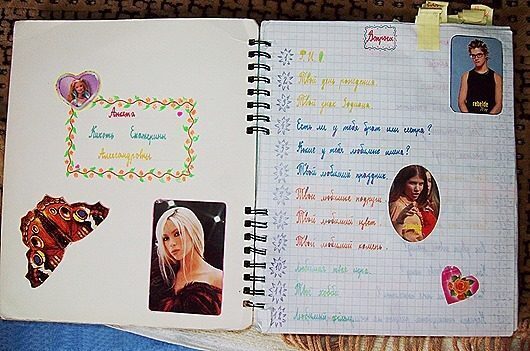 Анкета
Кикоть Екатерины
Александровны
Вопросы
Ф.И.
Твой день рождения.
Твой знак Зодиака.
Есть ли у тебя брат или сестра?
Какие у тебя любимые имена?
Твой любимый праздник.
Твои любимые подруги.
Твой любимый цвет.
Твой любимый камень.
Любимая твоя игра.
Твоё хобби.
Любимый фильм.
rebelde